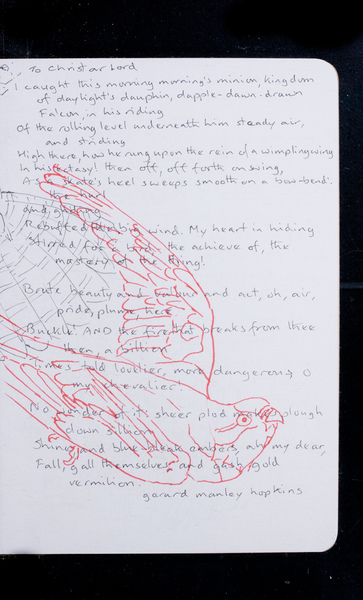 To Christ our Lord
I caught this morning morning's minion, kingdom
of daylight's dauphin, dapple-dawn-drawn
Falcon, in his riding
Of the rolling level underneath him steady air,
and striding
High there, how he rung upon the rein of a wimpling wing
In his ecstasy! then off, off forth on swing,
As a skate's heel sweeps smooth on a bow-bend:
the hurl
and gliding
Rebuffed the big wind. My heart in hiding
Stirred for a bird, the achieve of, the
mastery of the thing!
Brute beauty and valour and act, oh, air,
pride, plume, here
Buckle! AND the fire that breaks from thee
then, a billion
Times told lovelier, more dangerous, O
my chevalier!
No wonder of it: sheer plod makes plough
down sillion
Shine, and blue-bleak embers, ah my dear,
Fall, gall themselves, and gash gold
vermilion.
garard manley hopkins